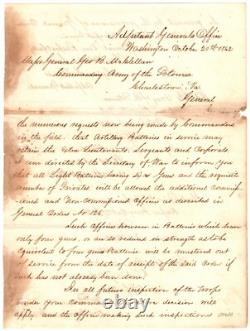 Adjutant General's Office
Washington October 20th 1862
Major General Geo B McClellan
Commanding Army of the Potomac
Charlestown, Va
General
the numerous requests now being made by Commanders
in the field, that Artillery Batteries in service may
retain the extra Lieutenants, Sergeants and Corporals
I am directed by the Secretary of War to inform you
that all Light Batteries having six guns and the requisite
number of Privates will be allowed the additional Commis-
sioned and Non-commissioned officers as described in
General Orders No 126.
Such officers however in Batteries which have
only four guns, or are so reduced in strength as to be
equivalent to four gun Batteries will be mustered out of
service from the date of receipt of the said order if
such has not already been done.
In all future inspection of the troops
under your Command this decision will
apply and the officers making such inspections will